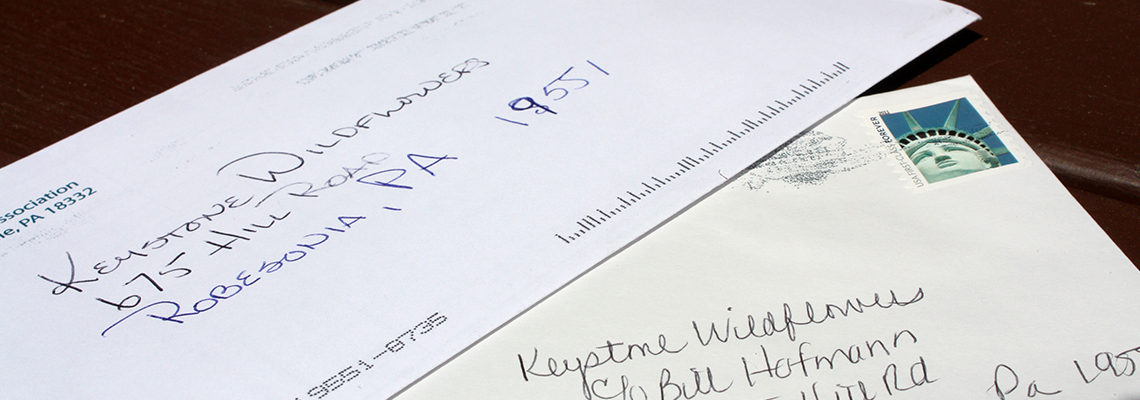 ssociation
le, PA 18332
KEYSTONE WILDFLOWERS
675 Hill ROAD
ROBESONIA, PA 19551
19551-8735
USA FIRST-CLASS FOREVER
Keystone Wildflowers
c/o Bill Hofmann
Hill Rd
Pa 1955